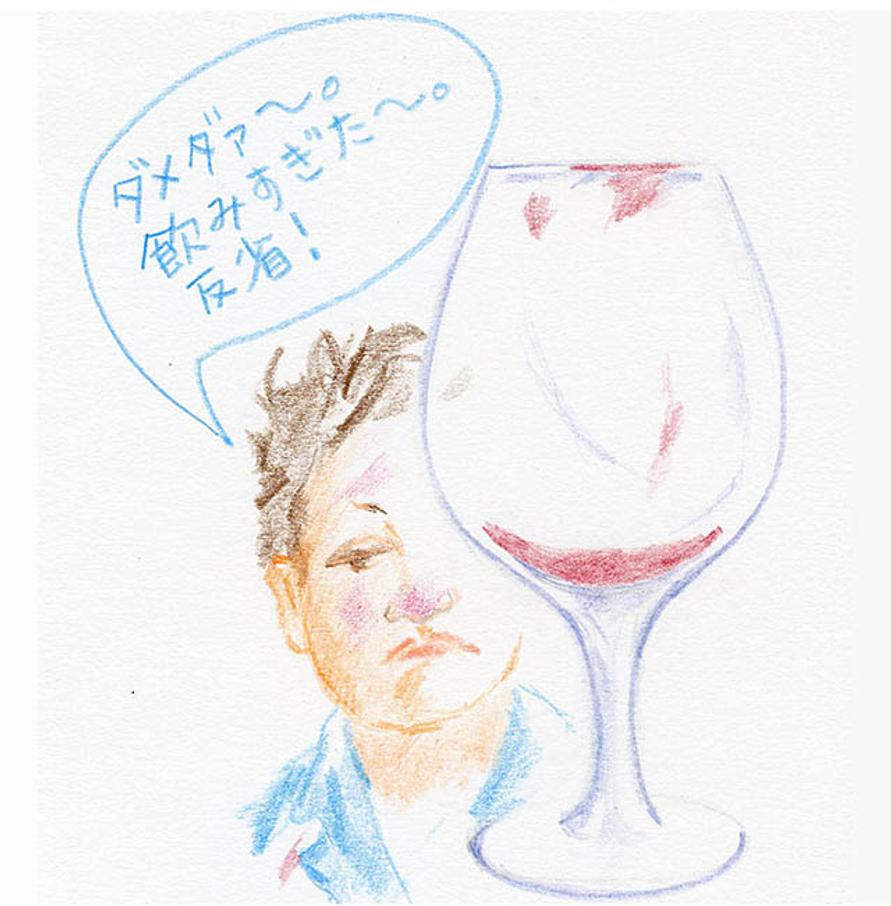 ダメダァ〜。
飲みすぎた〜。
反省!